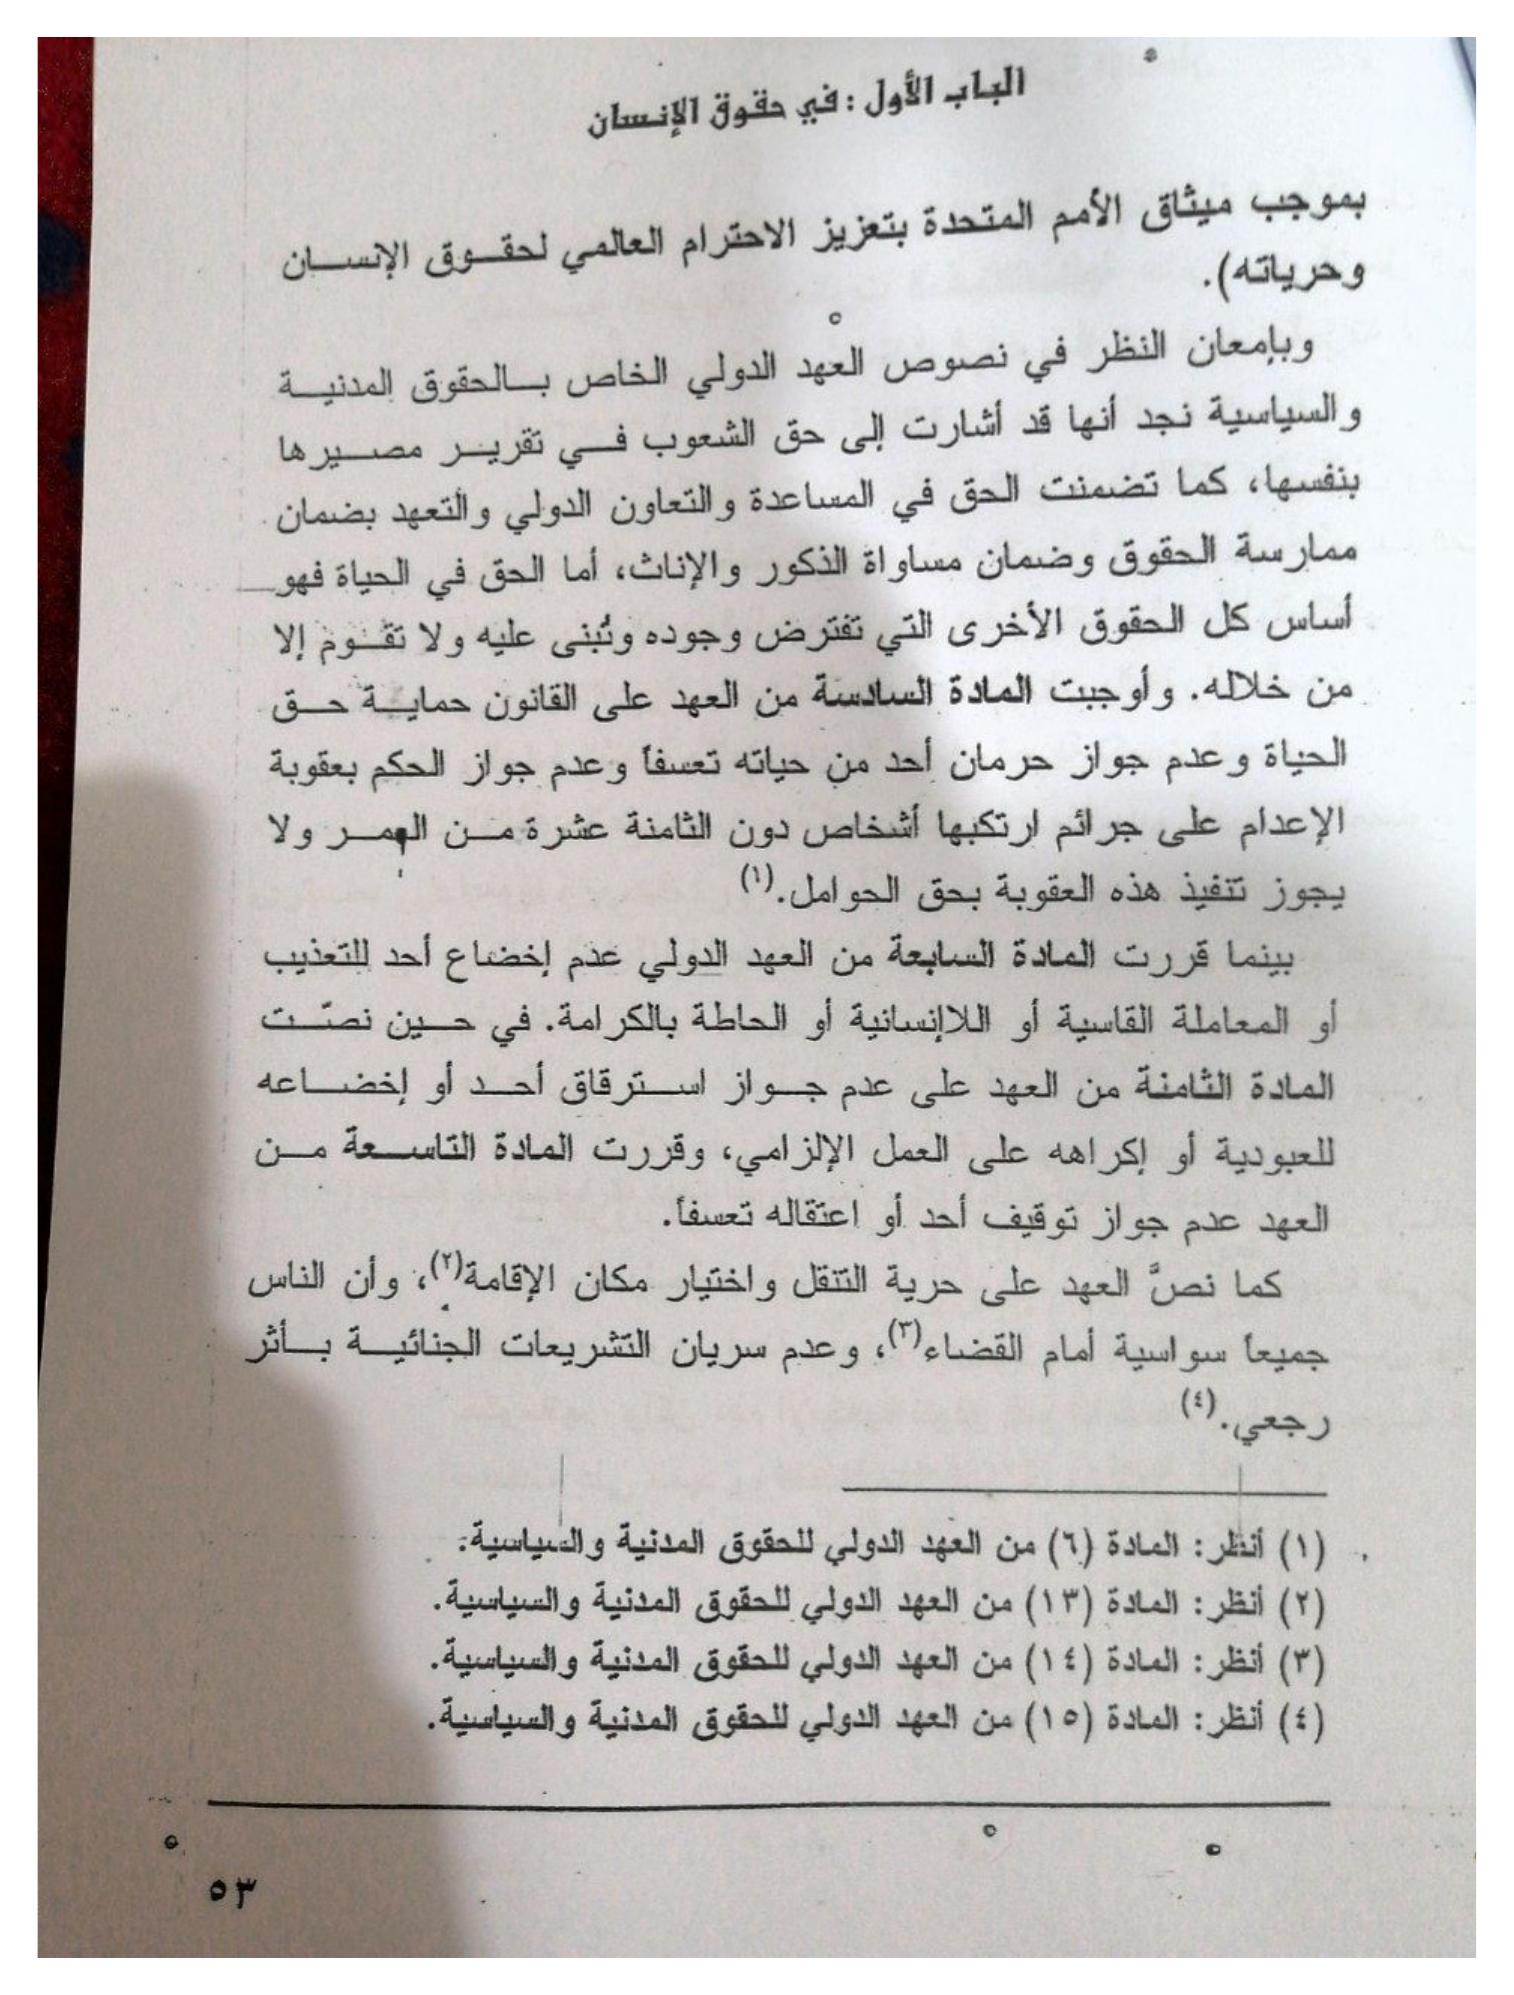 الباب الأول : في حقوق الإنسان
بموجب ميثاق الأمم المتحدة بتعزيز الاحترام العالمي لحقوق الإنسان
وحرياته).
وبإمعان النظر في نصوص العهد الدولي الخاص بالحقوق المدنية
والسياسية نجد أنها قد أشارت إلى حق الشعوب في تقرير مصيرها
بنفسها، كما تضمنت الحق في المساعدة والتعاون الدولي والتعهد بضمان
ممارسة الحقوق وضمان مساواة الذكور والإناث، أما الحق في الحياة فهو
أساس كل الحقوق الأخرى التي تفترض وجوده وتُبنى عليه ولا تقوم إلا
من خلاله. وأوجبت المادة السادسة من العهد على القانون حماية حق
الحياة وعدم جواز حرمان أحد من حياته تعسفاً وعدم جواز الحكم بعقوبة
الإعدام على جرائم ارتكبها أشخاص دون الثامنة عشرة من العمر ولا
يجوز تنفيذ هذه العقوبة بحق الحوامل.(١)
بينما قررت المادة السابعة من العهد الدولي عدم إخضاع أحد للتعذيب
أو المعاملة القاسية أو اللاإنسانية أو الحاطة بالكرامة. في حين نصّت
المادة الثامنة من العهد على عدم جواز استرقاق أحد أو إخضاعه
للعبودية أو إكراهه على العمل الإلزامي، وقررت المادة التاسعة من
العهد عدم جواز توقيف أحد أو اعتقاله تعسفاً.
كما نصَّ العهد على حرية التنقل واختيار مكان الإقامة(٢)، وأن الناس
جميعاً سواسية أمام القضاء(٣)، وعدم سريان التشريعات الجنائية بأثر
رجعي.(٤)
(١) أنظر: المادة (٦) من العهد الدولي للحقوق المدنية والسياسية.
(٢) أنظر: المادة (١٣) من العهد الدولي للحقوق المدنية والسياسية.
(٣) أنظر: المادة (١٤) من العهد الدولي للحقوق المدنية والسياسية.
(٤) أنظر: المادة (١٥) من العهد الدولي للحقوق المدنية والسياسية.
٥٣